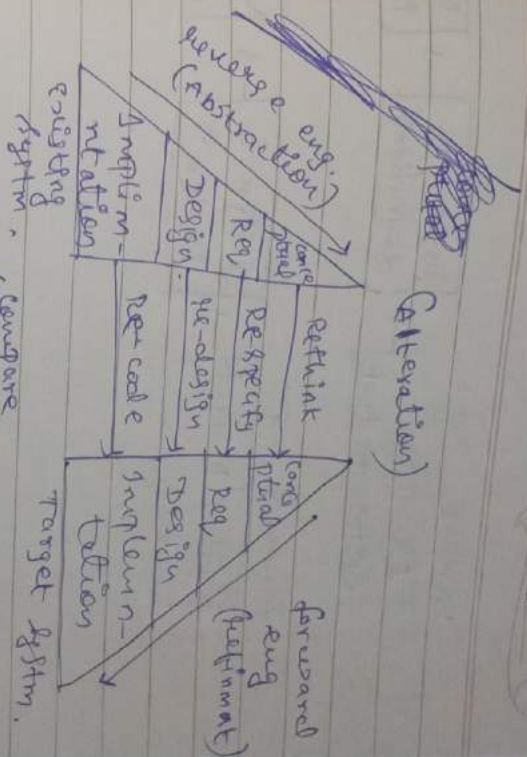 (Alteration)
reverse eng.
(Abstraction)
conce
ptual
Req
Design
Implim-
ntation
Existing
System.
Rethink
Respecify
re-design
Re-code
conce
ptual
Req
Design
Implemn-
tation
Target System.
forward
eng
(refinmat)
compare